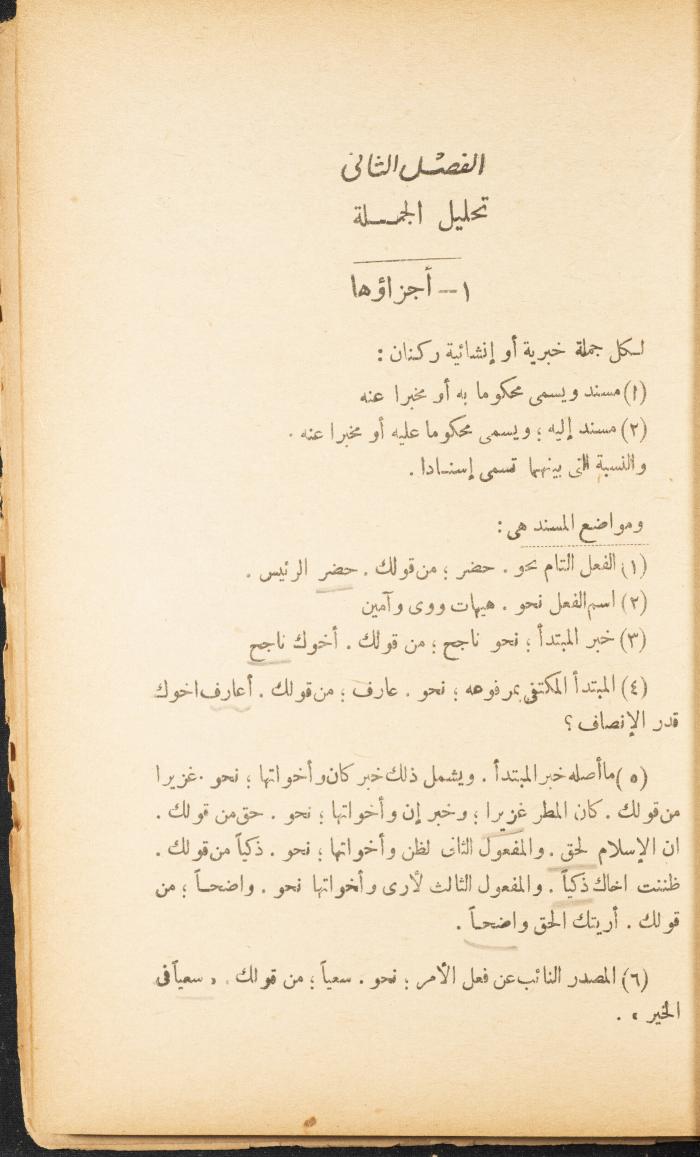 الفصل الثانى
تحليل الجملة
١ – أجزاؤها
لكل جملة خبرية أو إنشائية ركنان :
(١) مسند ويسمى محكوما به أو مخبرا عنه
(٢) مسند إليه ؛ ويسمى محكوما عليه أو مخبرا عنه .
والنسبة التى بينهما تسمى إسنادا .
ومواضع المسند هى :
(١) الفعل التام نحو . حضر ؛ من قولك . حضر الرئيس .
(٢) اسم الفعل نحو . هيهات ووى وآمين
(٣) خبر المبتدأ ؛ نحو ناجح ؛ من قولك . أخوك ناجح
(٤) المبتدأ المكتفى بمرفوعه ؛ نحو . عارف ؛ من قولك . أعارف اخوك
قدر الإنصاف ؟
(٥) ما أصله خبر المبتدأ . ويشمل ذلك خبر كان وأخواتها ؛ نحو . غزيرا
من قولك . كان المطر غزيرا ؛ وخبر إن وأخواتها ؛ نحو . حق من قولك .
ان الإسلام لحق . والمفعول الثانى لظن وأخواتها ؛ نحو . ذكياً من قولك .
ظننت اخاك ذكياً . والمفعول الثالث لأرى وأخواتها نحو . واضحاً ؛ من
قولك . أريتك الحق واضحاً .
(٦) المصدر النائب عن فعل الأمر ؛ نحو . سعياً ؛ من قولك . « سعياً فى
الخير » .